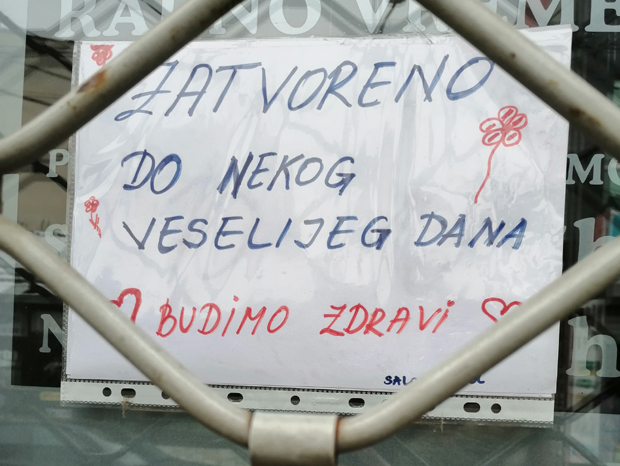 RADNO VREME
ZATVORENO
DO NEKOG
VESELIJEG DANA
BUDIMO ZDRAVI